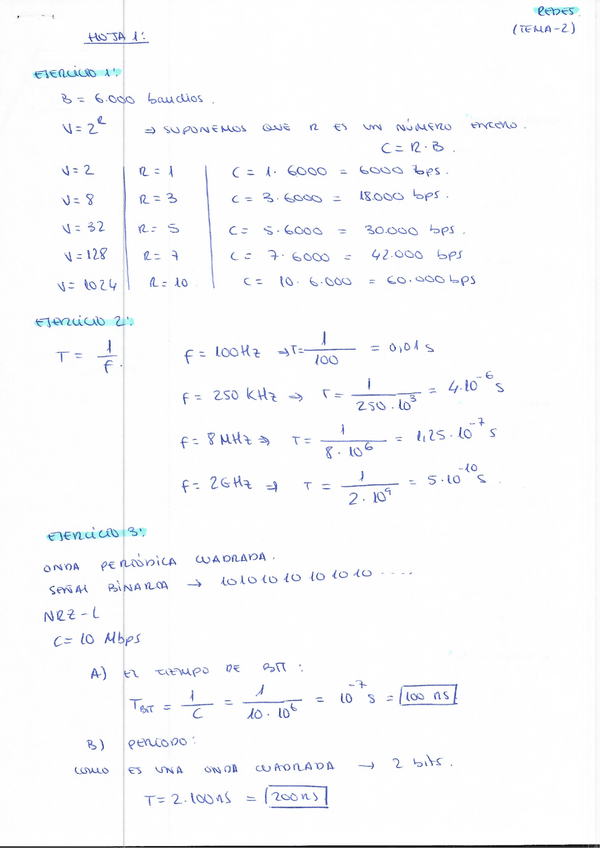 REDES.
(TEMA-2)
HOJA 1:
EJERCICIO 1:
B = 6.000 baudios.
V = 2^R ⇒ SUPONEMOS QUE R ES UN NÚMERO ENTERO.
C = R·B.
V = 2 R = 1 C = 1·6000 = 6000 bps.
V = 8 R = 3 C = 3·6000 = 18.000 bps.
V = 32 R = 5 C = 5·6000 = 30.000 bps.
V = 128 R = 7 C = 7·6000 = 42.000 bps
V = 1024 R = 10. C = 10·6.000 = 60.000 bps
EJERCICIO 2:
T = 1/f. f = 100Hz ⇒ T = 1/100 = 0,01 s
f = 250 KHz ⇒ T = 1/250·10^3 = 4·10^-6 s
f = 8 MHz ⇒ T = 1/8·10^6 = 1,25·10^-7 s
f = 2GHz ⇒ T = 1/2·10^9 = 5·10^-10 s.
EJERCICIO 3:
ONDA PERIÓDICA CUADRADA.
SEÑAL BINARIA → 10 10 10 10 10 10 10 ....
NRZ-L
C = 10 Mbps
A) EL TIEMPO DE BIT:
T_BIT = 1/C = 1/10·10^6 = 10^-7 s = 100 ns
B) PERIODO:
COMO ES UNA ONDA CUADRADA → 2 bits.
T = 2·100ns = 200ns